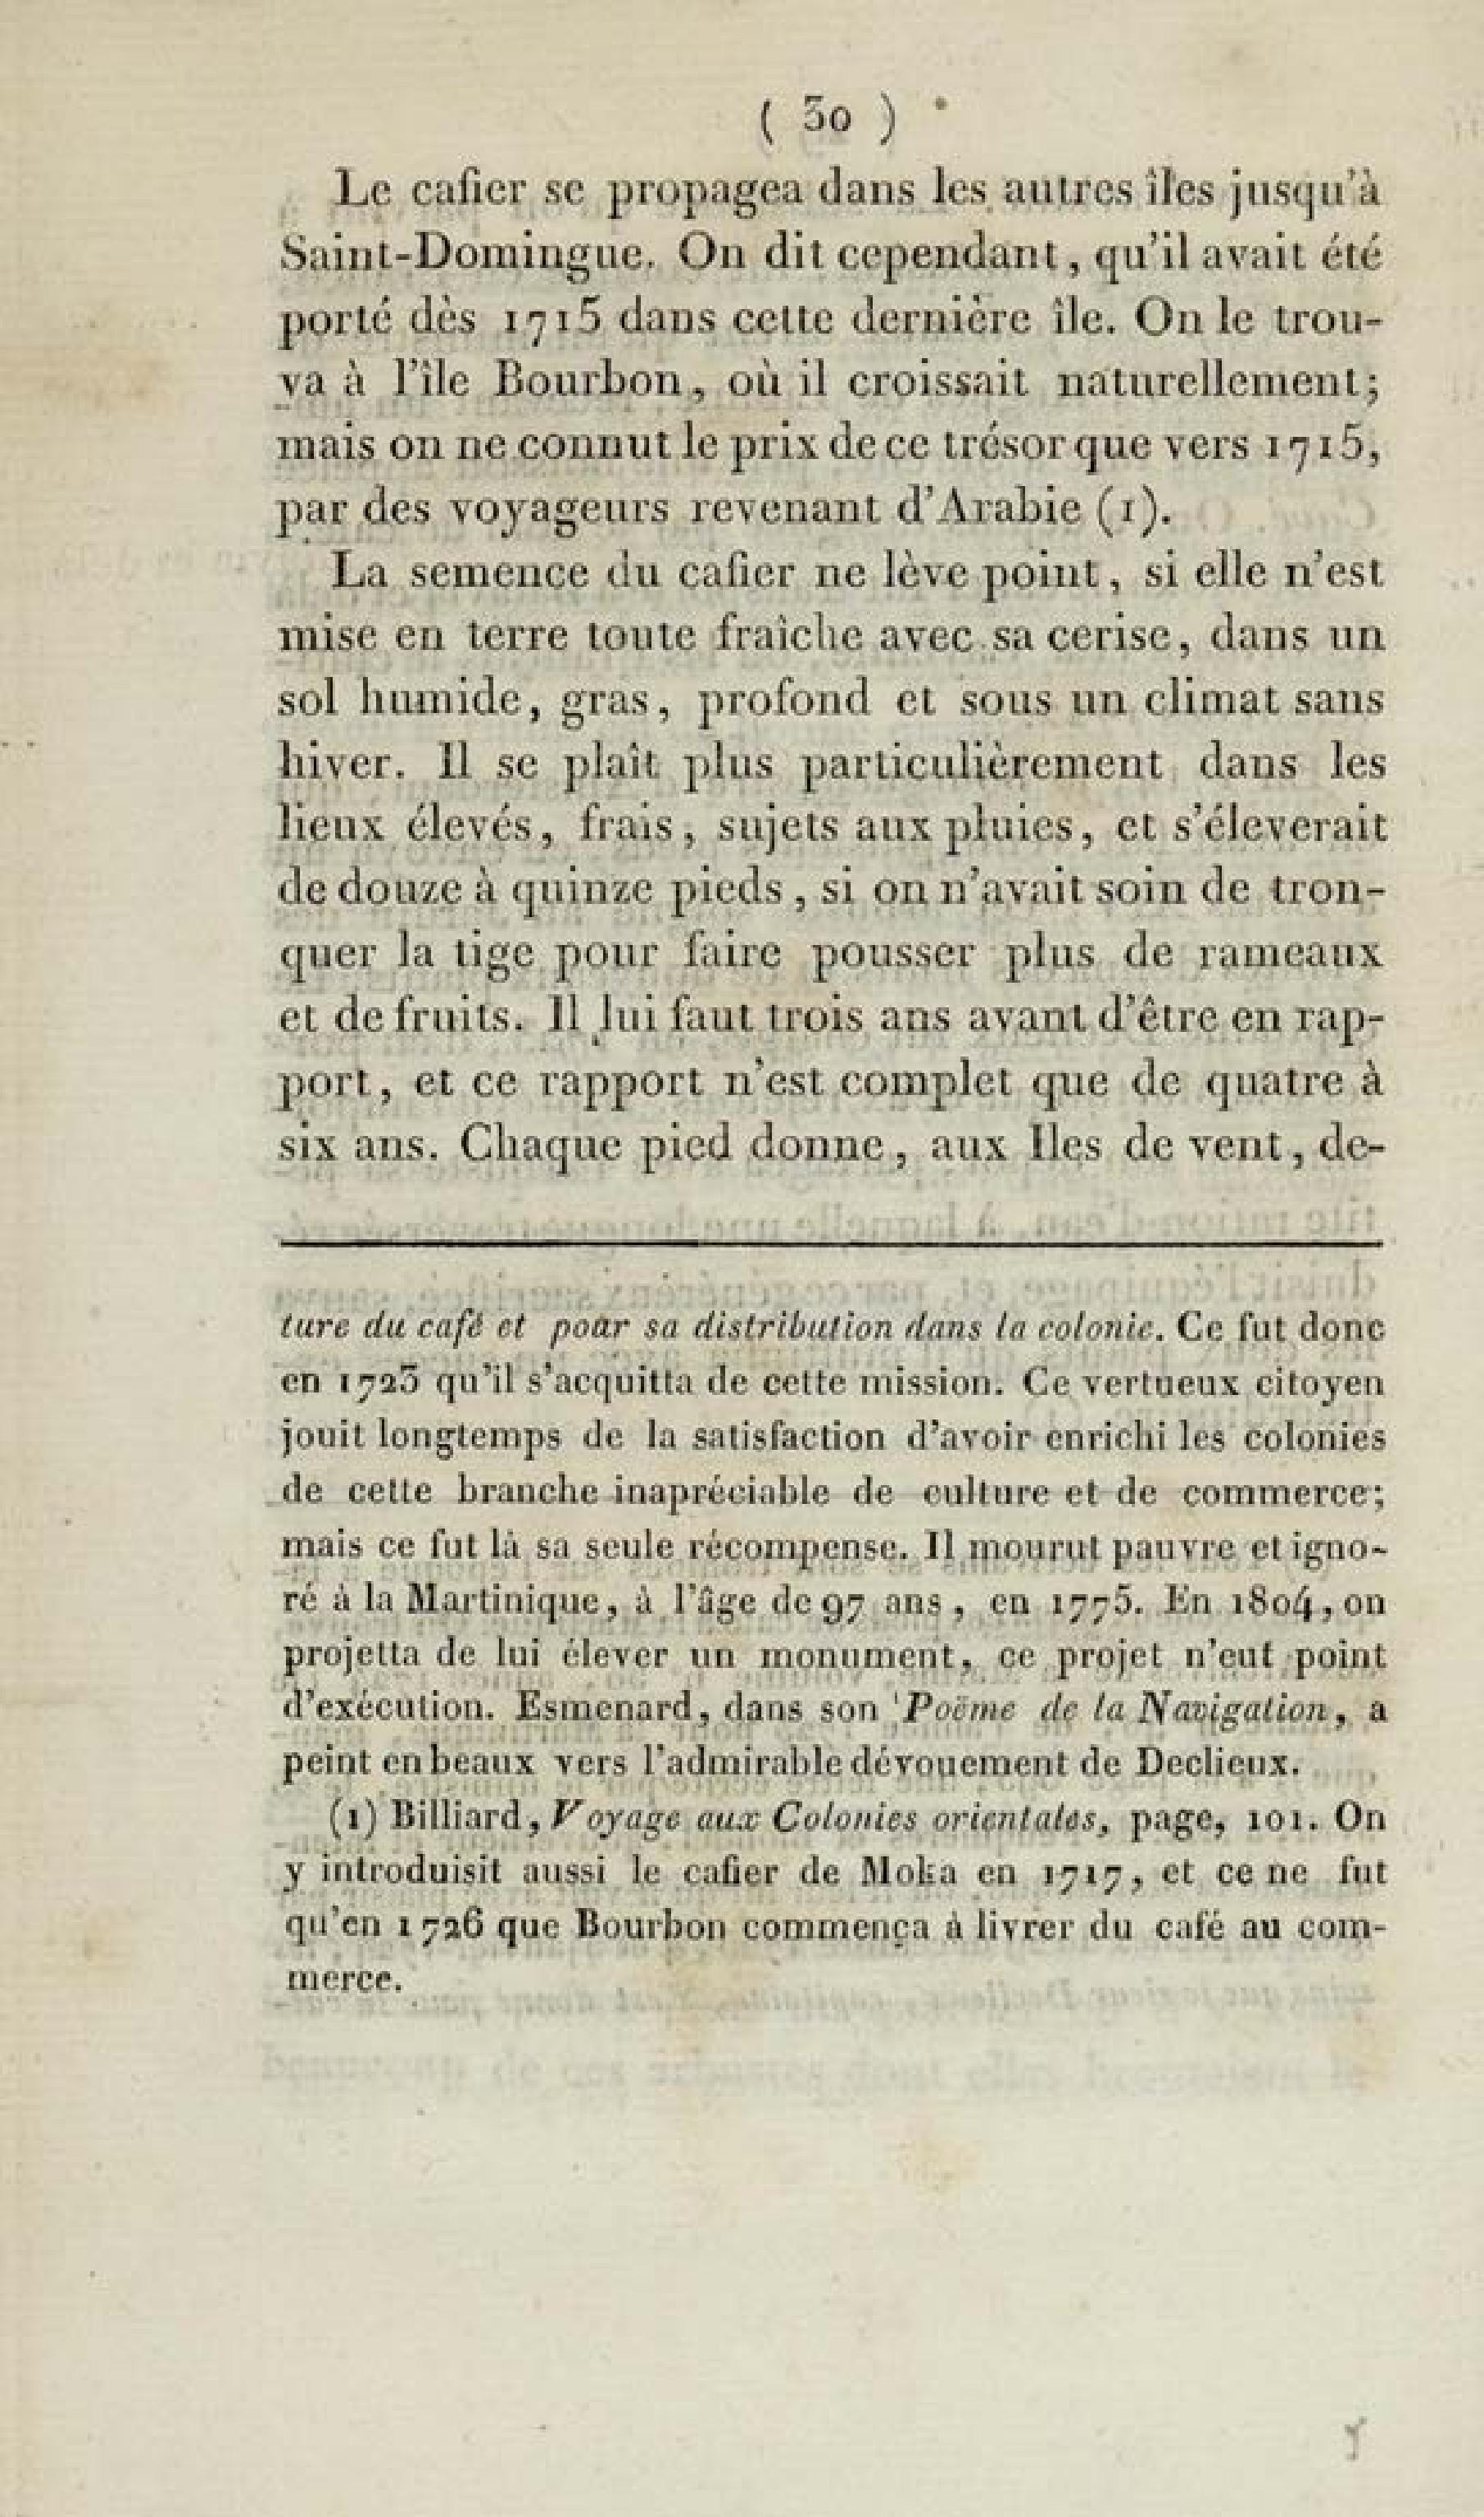 ( 30 )
Le cafier se propagea dans les autres îles jusqu'à
Saint-Domingue. On dit cependant, qu'il avait été
porté dès 1715 dans cette dernière île. On le trou-
va à l'île Bourbon, où il croissait naturellement;
mais on ne connut le prix de ce trésor que vers 1715,
par des voyageurs revenant d'Arabie (1).
La semence du cafier ne lève point, si elle n'est
mise en terre toute fraîche avec sa cerise, dans un
sol humide, gras, profond et sous un climat sans
hiver. Il se plaît plus particulièrement dans les
lieux élevés, frais, sujets aux pluies, et s'éleverait
de douze à quinze pieds, si on n'avait soin de tron-
quer la tige pour faire pousser plus de rameaux
et de fruits. Il lui faut trois ans avant d'être en rap-
port, et ce rapport n'est complet que de quatre à
six ans. Chaque pied donne, aux Iles de vent, de-
ture du café et pour sa distribution dans la colonie. Ce fut donc
en 1723 qu'il s'acquitta de cette mission. Ce vertueux citoyen
jouit longtemps de la satisfaction d'avoir enrichi les colonies
de cette branche inapréciable de culture et de commerce;
mais ce fut là sa seule récompense. Il mourut pauvre et igno-
ré à la Martinique, à l'âge de 97 ans, en 1775. En 1804, on
projetta de lui élever un monument, ce projet n'eut point
d'exécution. Esmenard, dans son Poëme de la Navigation, a
peint en beaux vers l'admirable dévouement de Declieux.
(1) Billiard, Voyage aux Colonies orientales, page, 101. On
y introduisit aussi le cafier de Moka en 1717, et ce ne fut
qu'en 1726 que Bourbon commença à livrer du café au com-
merce.